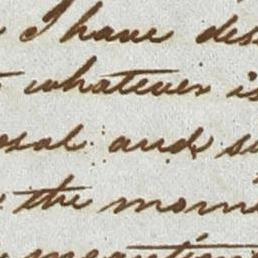 I have des
whatever is
osal and su
the morni